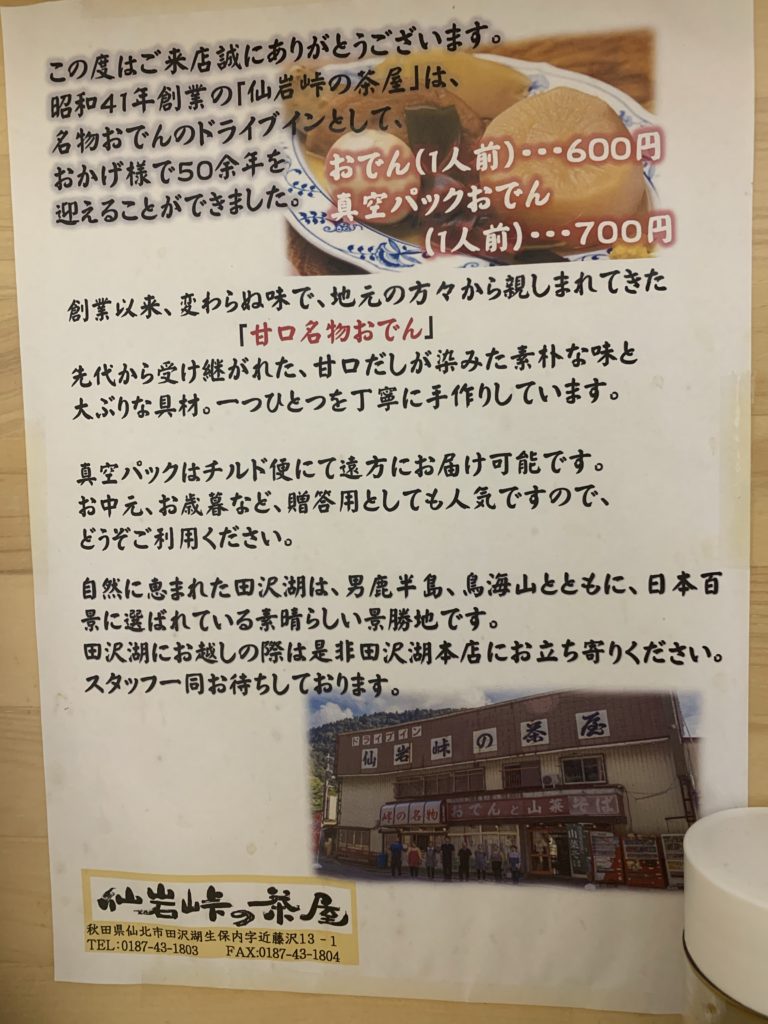 この度はご来店誠にありがとうございます。
昭和41年創業の「仙岩峠の茶屋」は、
名物おでんのドライブインとして、
おかげ様で50余年を
迎えることができました。
おでん(1人前)･･･600円
真空パックおでん
(1人前)･･･700円
創業以来、変わらぬ味で、地元の方々から親しまれてきた
「甘口名物おでん」
先代から受け継がれた、甘口だしが染みた素朴な味と
大ぶりな具材。一つひとつを丁寧に手作りしています。
真空パックはチルド便にて遠方にお届け可能です。
お中元、お歳暮など、贈答用としても人気ですので、
どうぞご利用ください。
自然に恵まれた田沢湖は、男鹿半島、鳥海山とともに、日本百
景に選ばれている素晴らしい景勝地です。
田沢湖にお越しの際は是非田沢湖本店にお立ち寄りください。
スタッフ一同お待ちしております。
ドライブイン
仙岩峠の茶屋
峠の名物 おでんと山菜そば
仙岩峠の茶屋
秋田県仙北市田沢湖生保内字近藤沢13-1
TEL:0187-43-1803 FAX:0187-43-1804